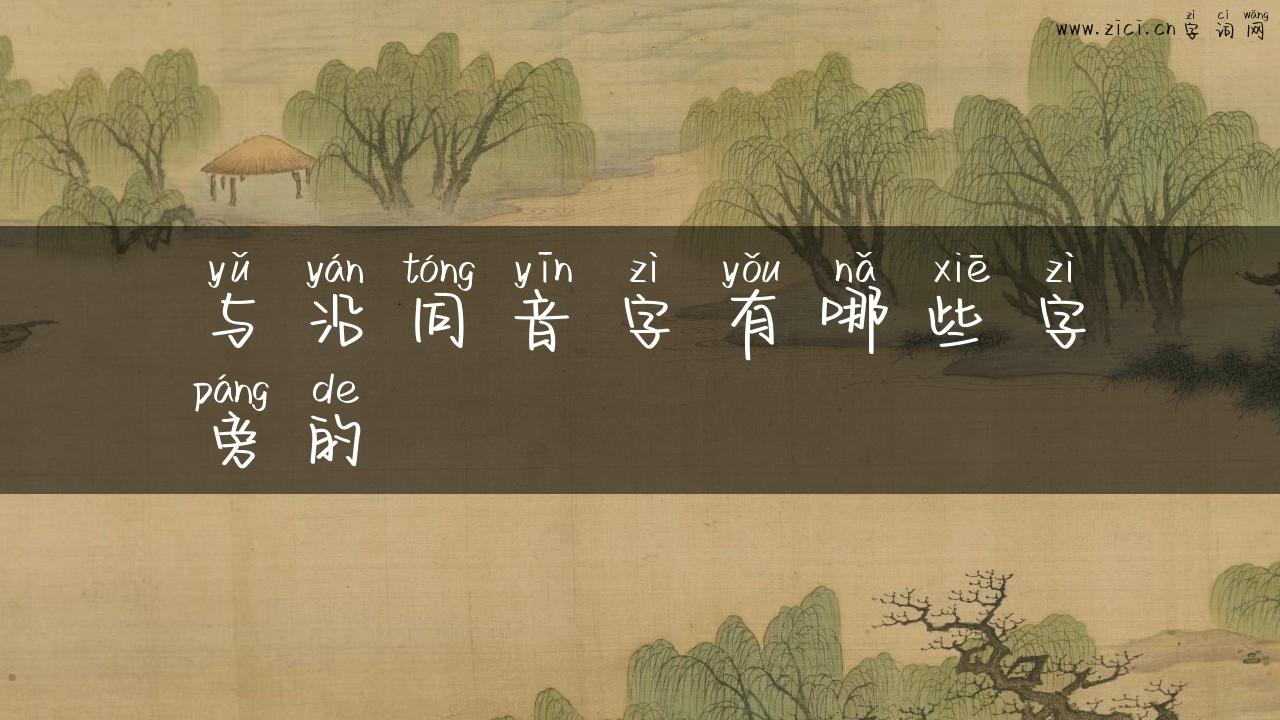 zì cí wǎng
www.zici.cn 字 词 网
yǔ yán tóng yīn zì yǒu nǎ xiē zì
与 沿 同 音 字 有 哪 些 字
páng de
旁 的